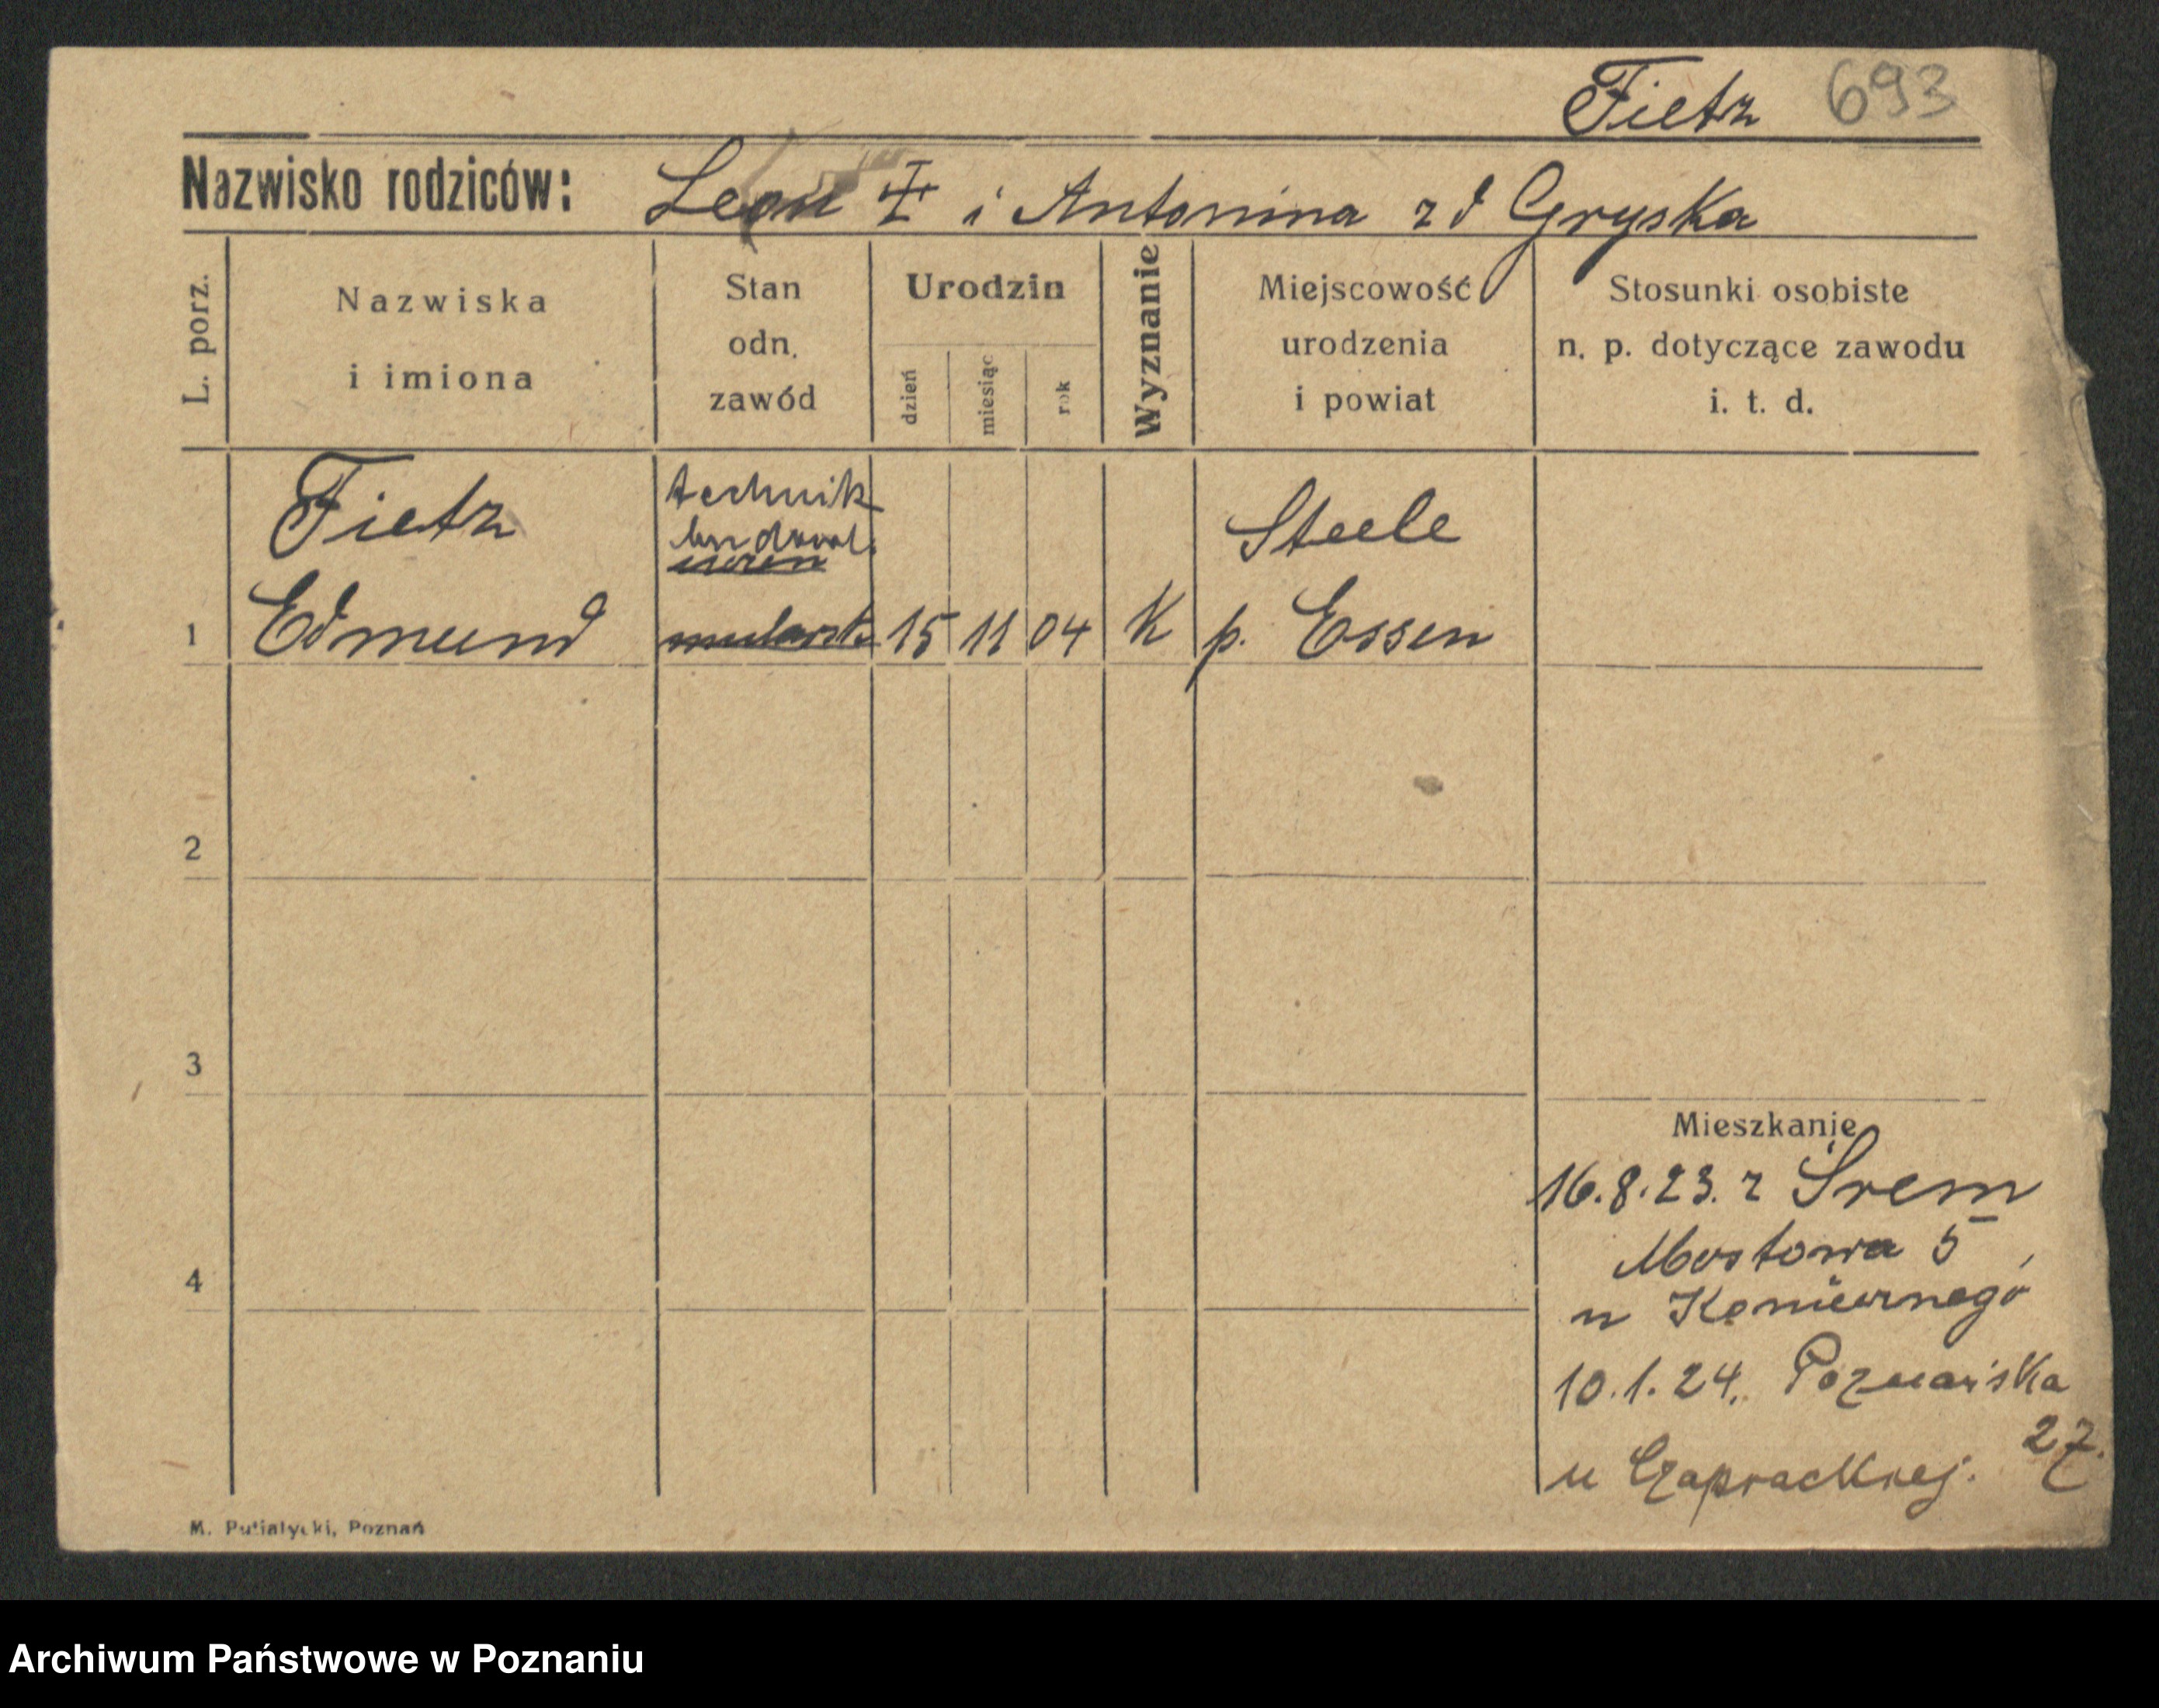 Fietz 693
Nazwisko rodziców: Leon F i Antonina zd Gryska
L. porz.
Nazwiska
i imiona
Stan
odn.
zawód
Urodzin
dzień
miesiąc
rok
Wyznanie
Miejscowość
urodzenia
i powiat
Stosunki osobiste
n. p. dotyczące zawodu
i. t. d.
technik
budowl.
uczeń
Fietz
Steele
1 Edmund mularski 15 11 04 K p. Essen
2
3
4
Mieszkanie
16.8.23. z Śrem
Mostowa 5
u
10.1.24. Poznańska
27.
u Czaprackiej.
M. Putiatycki, Poznań
Archiwum Państwowe w Poznaniu